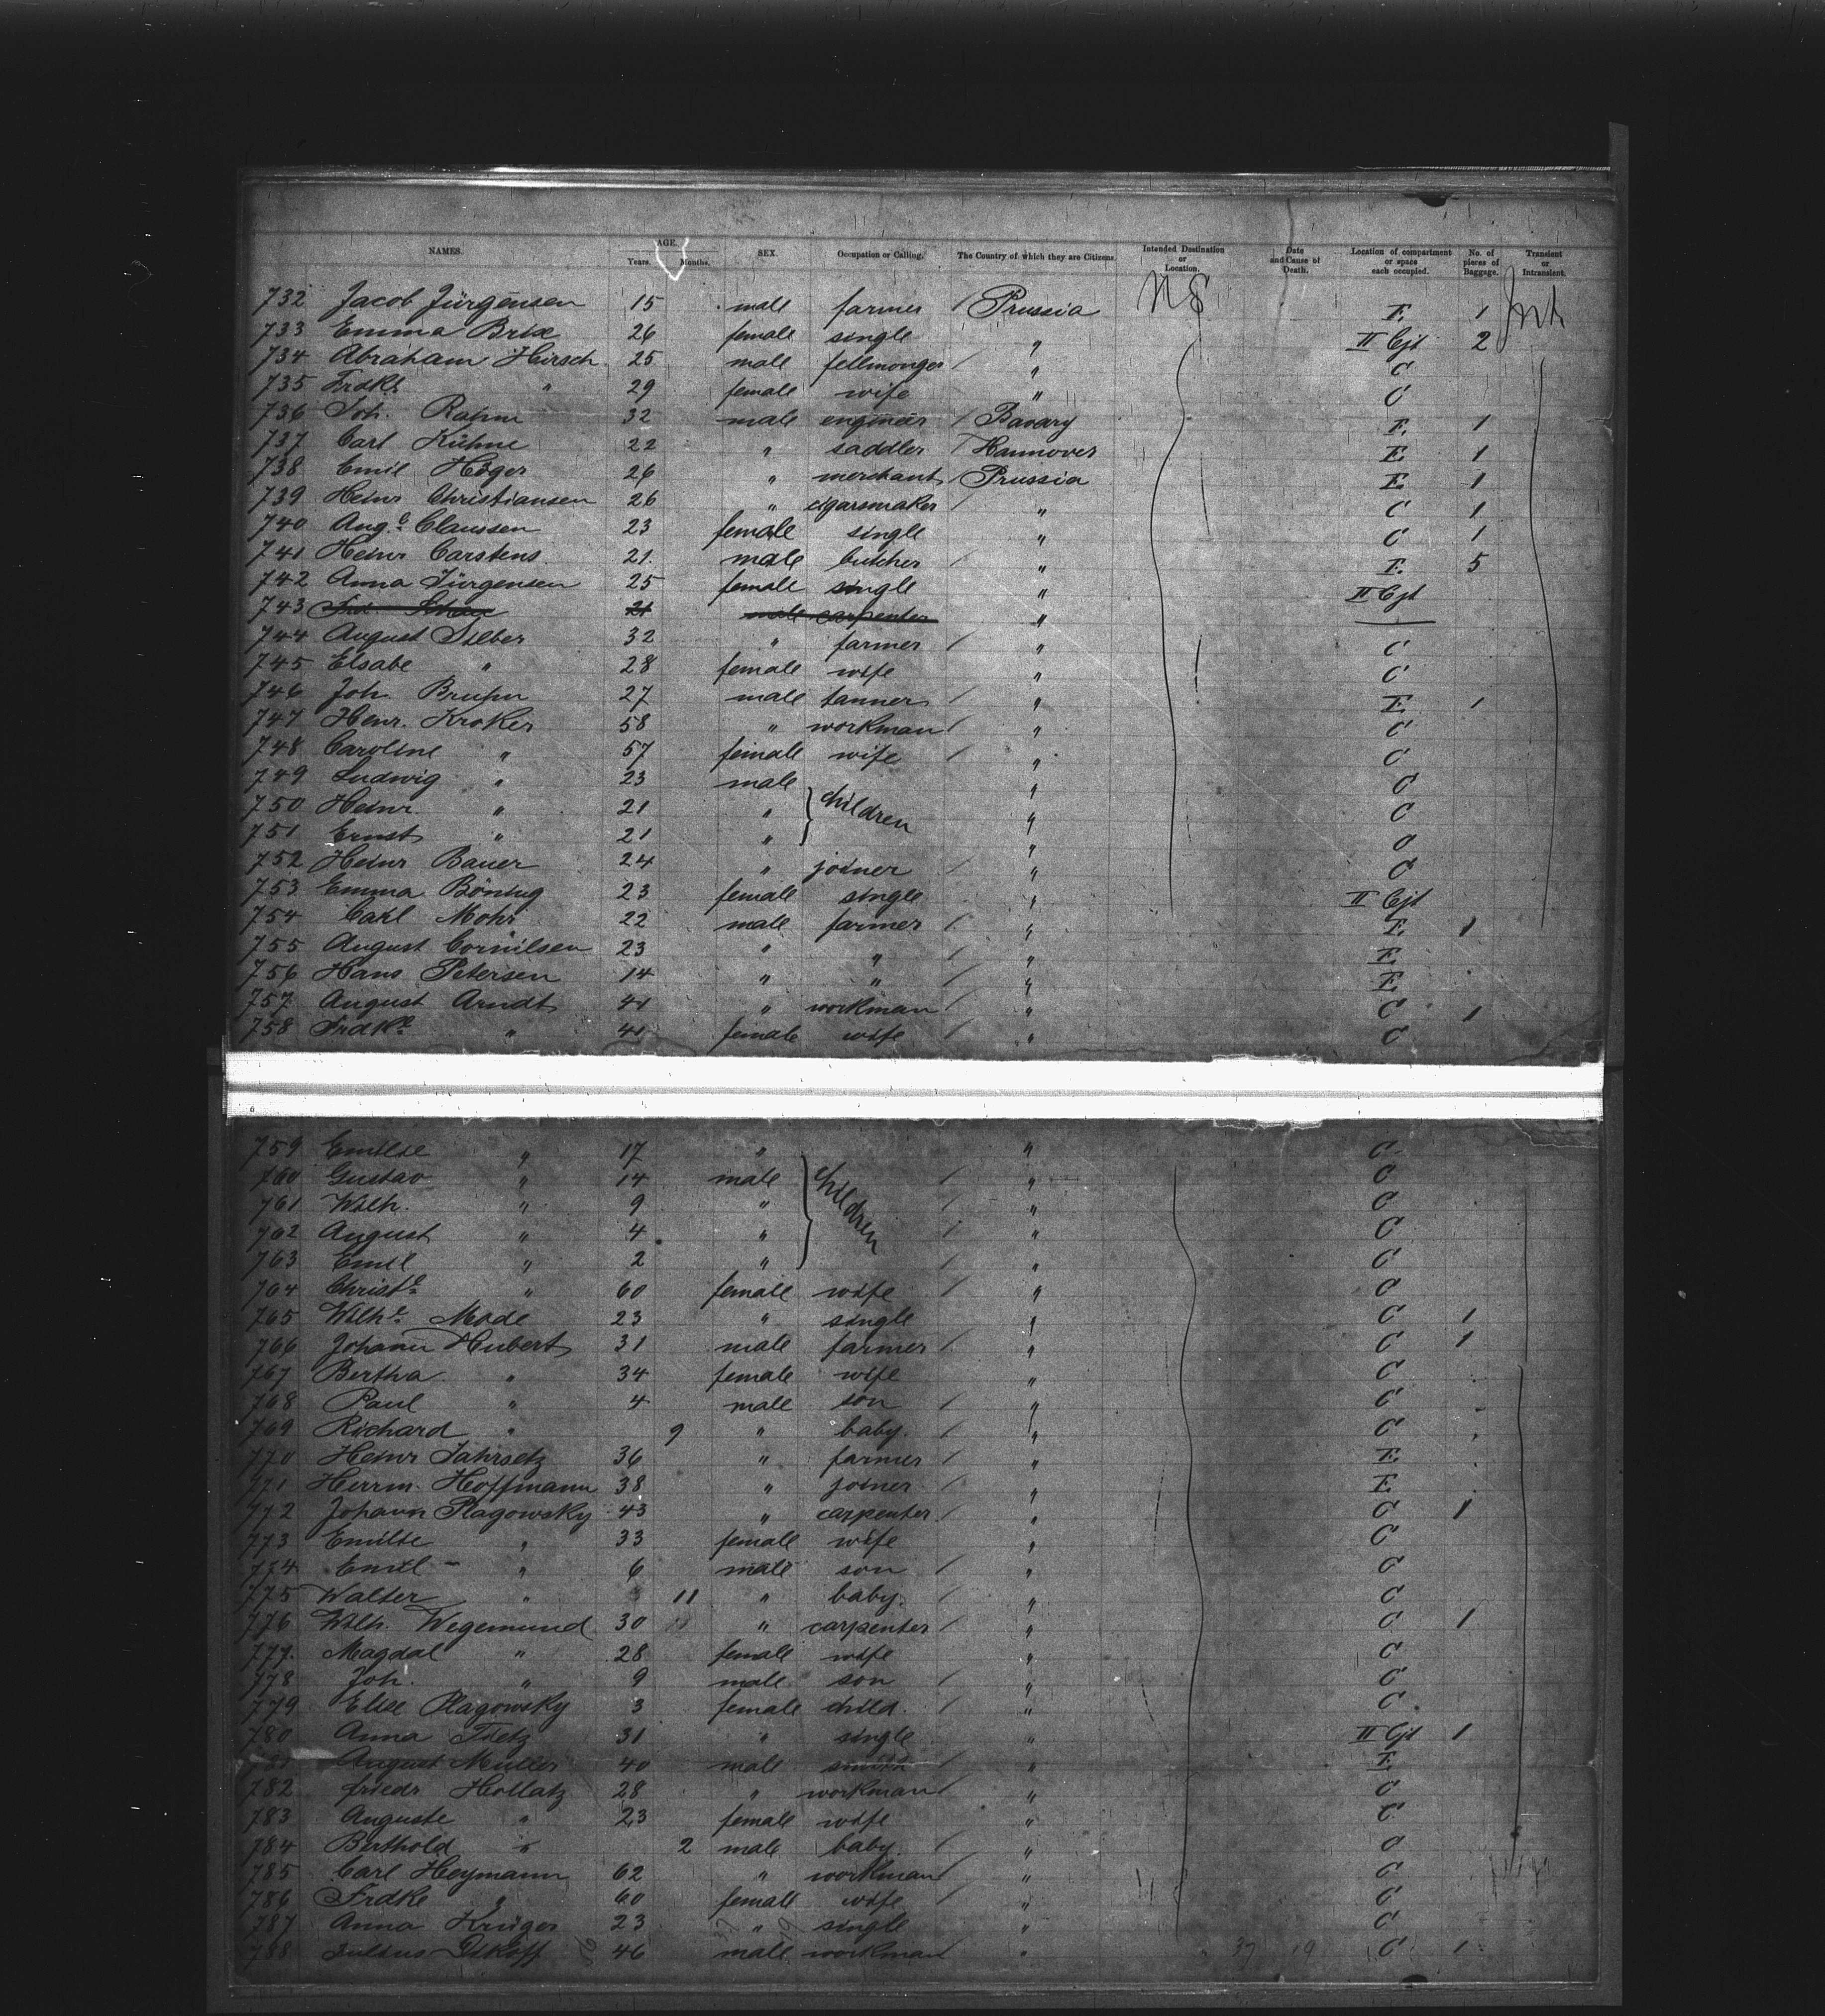 NAMES. AGE. Years. Months. SEX. Occupation or Calling. The Country of which they are Citizens. Intended Destination or Location. Date and Cause of Death. Location of compartment or space each occupied. No. of pieces of Baggage. Transient or Intransient.
732 Jacob Jürgensen 15 male farmer Prussia E. 1
733 Emma Brix 26 female single " II Cjt 2
734 Abraham Hirsch 25 male fellmonger " C
735 Frdke " 29 female wife " C
736 Joh. Rahm 32 male engineer Bavary E. 1
737 Carl Kühne 22 " saddler Hannover E. 1
738 Emil Höger 26 " merchant Prussia E. 1
739 Heinr Christiansen 26 " cigarsmaker " C 1
740 Auge Claussen 23 female single " C 1
741 Heinr Carstens 21. male butcher " E. 5
742 Anna Jürgensen 25 female single " II Cjt
743 21 male carpenter "
744 August Silber 32 " farmer " C
745 Elsabe " 28 female wife " C
746 Joh. Bruhn 27 male tanner " E 1
747 Henr. Kroker 58 " workman " C
748 Caroline " 57 female wife " C
749 Ludwig " 23 male " C
750 Heinr " 21 " children " C
751 Ernst " 21 " " C
752 Heinr Bauer 24 " joiner " C
753 Emma Böning 23 female single " II Cjt
754 Carl Mohr 22 male farmer " E. 1
755 August Cornilsen 23 " " " E
756 Hans Petersen 14 " " " E
757 August Arndt 41 " workman " C 1
758 Frdke " 41 female wife " C
759 Emilie " 17 " " C
760 Gustav " 14 male " C
761 Wilh. " 9 " children " C
762 August " 4 " " C
763 Emil " 2 " " C
764 Christe " 60 female wife " C
765 Wilhe Mode 23 " single " C 1
766 Johann Hubert 31 male farmer " C 1
767 Bertha " 34 female wife " C
768 Paul " 4 male son " C
769 Richard " 9 " baby. " C
770 Heinr Jahrsetz 36 " farmer " E
771 Herrm. Hoffmann 38 " joiner " E
772 Johann Plagowsky 43 " carpenter " C 1
773 Emilie " 33 female wife " C
774 Emil " 6 male son " C
775 Walter " 11 " baby. " C
776 Wilh. Wegemund 30 " carpenter " C 1
777. Magdal " 28 female wife " C
778 Joh. " 9 male son " C
779 Elise Plagowsky 3 female child. " C
780 Anna Tietz 31 " single " II Cjt 1
781 August Müller 40 male " E
782 Friedr Hollatz 28 " workman " C
783 Auguste " 23 female wife " C
784 Berthold " 2 male baby. " C
785 Carl Heymann 62 " workman " C
786 Frdke " 60 female wife " C
787 Anna Krüger 23 " single " C
788 Julius 46 male workman " 37 19 C 1